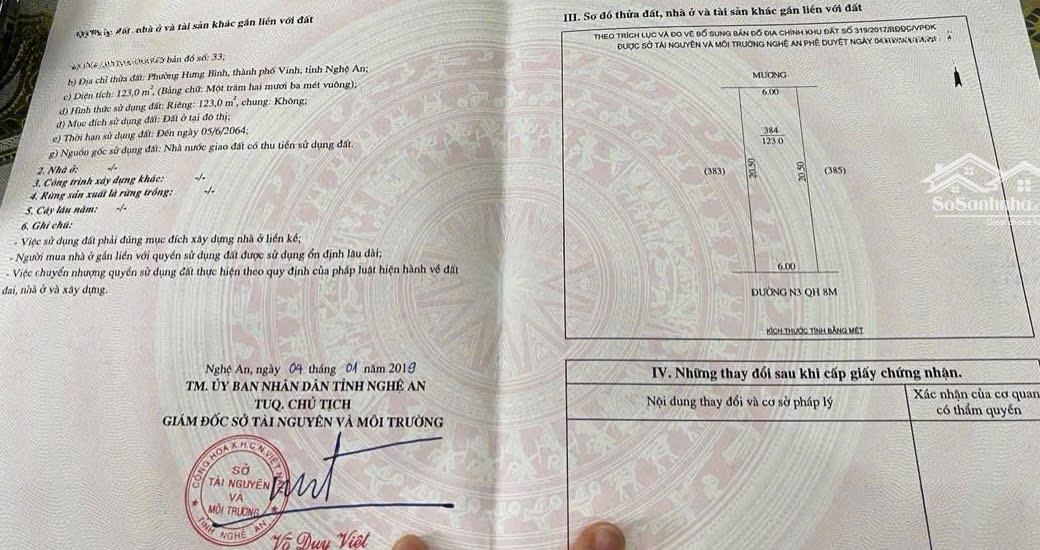 đất, nhà ở và tài sản khác gắn liền với đất
bản đồ số: 33;
b) Địa chỉ thửa đất: Phường Hưng Bình, thành phố Vinh, tỉnh Nghệ An;
c) Diện tích: 123,0 m², (Bằng chữ: Một trăm hai mươi ba mét vuông);
d) Hình thức sử dụng đất: Riêng: 123,0 m², chung: Không;
đ) Mục đích sử dụng đất: Đất ở tại đô thị;
e) Thời hạn sử dụng đất: Đến ngày 05/6/2064;
g) Nguồn gốc sử dụng đất: Nhà nước giao đất có thu tiền sử dụng đất.
2. Nhà ở: -/-
3. Công trình xây dựng khác: -/-
4. Rừng sản xuất là rừng trồng: -/-
5. Cây lâu năm: -/-
6. Ghi chú:
- Việc sử dụng đất phải đúng mục đích xây dựng nhà ở liền kề;
- Người mua nhà ở gắn liền với quyền sử dụng đất được sử dụng ổn định lâu dài;
- Việc chuyển nhượng quyền sử dụng đất thực hiện theo quy định của pháp luật hiện hành về đất
đai, nhà ở và xây dựng.
Nghệ An, ngày 04 tháng 01 năm 2019
TM. ỦY BAN NHÂN DÂN TỈNH NGHỆ AN
TUQ. CHỦ TỊCH
GIÁM ĐỐC SỞ TÀI NGUYÊN VÀ MÔI TRƯỜNG
CỘNG HÒA X.H.C.N VIỆT NAM
SỞ
TÀI NGUYÊN
VÀ
MÔI TRƯỜNG
TỈNH NGHỆ AN
Võ Duy Việt
III. Sơ đồ thửa đất, nhà ở và tài sản khác gắn liền với đất
THEO TRÍCH LỤC VÀ ĐO VẼ BỔ SUNG BẢN ĐỒ ĐỊA CHÍNH KHU ĐẤT SỐ 319/2017/BĐĐC/VPĐK
ĐƯỢC SỞ TÀI NGUYÊN VÀ MÔI TRƯỜNG NGHỆ AN PHÊ DUYỆT NGÀY
MƯƠNG
6.00
384
123.0
(383)
20.50
20.50
(385)
6.00
ĐƯỜNG N3 QH 8M
KÍCH THƯỚC TÍNH BẰNG MÉT
SoSanhnha
IV. Những thay đổi sau khi cấp giấy chứng nhận.
Nội dung thay đổi và cơ sở pháp lý
Xác nhận của cơ quan
có thẩm quyền